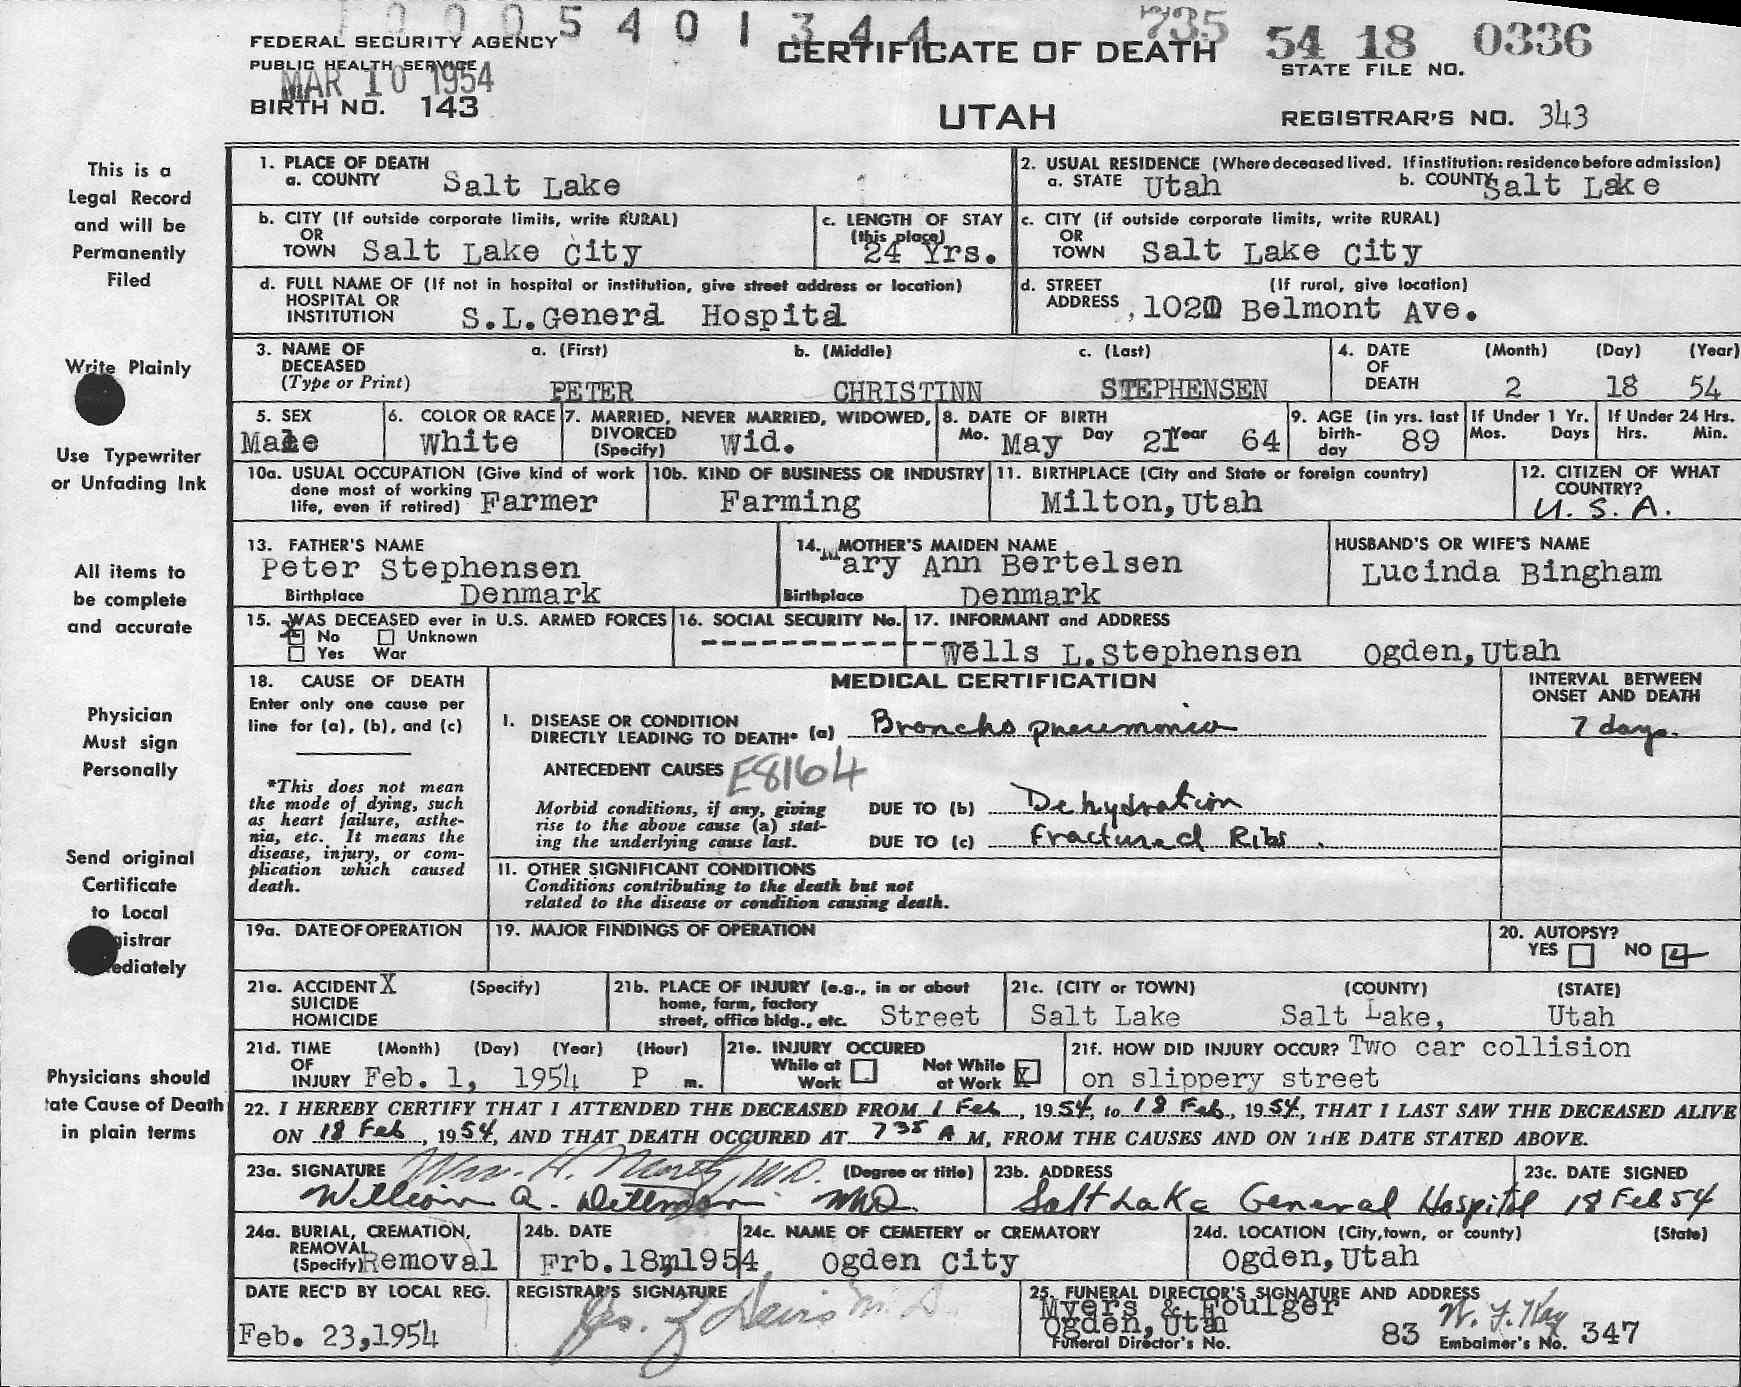 1 0 0 0 5 4 0 1 3 4 4 735
FEDERAL SECURITY AGENCY CERTIFICATE OF DEATH 54 18 0336
PUBLIC HEALTH SERVICE STATE FILE NO.
MAR 10 1954
BIRTH NO. 143 UTAH REGISTRAR'S NO. 343
This is a
Legal Record
and will be
Permanently
Filed
Write Plainly
Use Typewriter
or Unfading Ink
All items to
be complete
and accurate
Physician
Must sign
Personally
Send original
Certificate
to Local
gistrar
ediately
Physicians should
tate Cause of Death
in plain terms
1. PLACE OF DEATH
a. COUNTY Salt Lake
2. USUAL RESIDENCE (Where deceased lived. If institution: residence before admission)
a. STATE Utah b. COUNTY Salt Lake
b. CITY (If outside corporate limits, write RURAL)
OR
TOWN Salt Lake City
c. LENGTH OF STAY
(this place)
24 Yrs.
c. CITY (if outside corporate limits, write RURAL)
OR
TOWN Salt Lake City
d. FULL NAME OF (If not in hospital or institution, give street address or location)
HOSPITAL OR
INSTITUTION S.L.General Hospital
d. STREET (If rural, give location)
ADDRESS , Belmont Ave.
3. NAME OF a. (First) b. (Middle) c. (Last)
DECEASED
(Type or Print) PETER CHRISTINN STEPHENSEN
4. DATE (Month) (Day) (Year)
OF
DEATH 2 18 54
5. SEX
Male
6. COLOR OR RACE
White
7. MARRIED, NEVER MARRIED, WIDOWED,
DIVORCED
(Specify) Wid.
8. DATE OF BIRTH
Mo. May Day 21 Year 64
9. AGE (in yrs. last
birth-
day 89
If Under 1 Yr.
Mos. Days
If Under 24 Hrs.
Hrs. Min.
10a. USUAL OCCUPATION (Give kind of work
done most of working
life, even if retired) Farmer
10b. KIND OF BUSINESS OR INDUSTRY
Farming
11. BIRTHPLACE (City and State or foreign country)
Milton,Utah
12. CITIZEN OF WHAT
COUNTRY?
U. S. A.
13. FATHER'S NAME
Peter Stephensen
Birthplace Denmark
14. MOTHER'S MAIDEN NAME
Mary Ann Bertelsen
Birthplace Denmark
HUSBAND'S OR WIFE'S NAME
Lucinda Bingham
15. WAS DECEASED ever in U.S. ARMED FORCES
X No Unknown
Yes War
16. SOCIAL SECURITY No.
--------------
17. INFORMANT and ADDRESS
Wells L.Stephensen Ogden,Utah
18. CAUSE OF DEATH
Enter only one cause per
line for (a), (b), and (c)
*This does not mean
the mode of dying, such
as heart failure, asthe-
nia, etc. It means the
disease, injury, or com-
plication which caused
death.
MEDICAL CERTIFICATION
INTERVAL BETWEEN
ONSET AND DEATH
I. DISEASE OR CONDITION
DIRECTLY LEADING TO DEATH* (a) Broncho pneumonia 7 days.
ANTECEDENT CAUSES E8164
Morbid conditions, if any, giving
rise to the above cause (a) stat-
ing the underlying cause last.
DUE TO (b) Dehydration
DUE TO (c) Fractured Ribs.
II. OTHER SIGNIFICANT CONDITIONS
Conditions contributing to the death but not
related to the disease or condition causing death.
19a. DATE OF OPERATION
19. MAJOR FINDINGS OF OPERATION
20. AUTOPSY?
YES NO
21a. ACCIDENT X (Specify)
SUICIDE
HOMICIDE
21b. PLACE OF INJURY (e.g., in or about
home, farm, factory
street, office bldg., etc. Street
21c. (CITY or TOWN) (COUNTY) (STATE)
Salt Lake Salt Lake, Utah
21d. TIME (Month) (Day) (Year) (Hour)
OF
INJURY Feb. 1, 1954 P m.
21e. INJURY OCCURED
While at Work
Not While at Work X
21f. HOW DID INJURY OCCUR? Two car collision
on slippery street
22. I HEREBY CERTIFY THAT I ATTENDED THE DECEASED FROM 1 Feb, 1954, to 18 Feb., 1954, THAT I LAST SAW THE DECEASED ALIVE
ON 18 Feb, 1954, AND THAT DEATH OCCURED AT 735 A M, FROM THE CAUSES AND ON THE DATE STATED ABOVE.
23a. SIGNATURE Wm. H. M.D. (Degree or title)
William Q. M.D.
23b. ADDRESS
Salt Lake General Hospital
23c. DATE SIGNED
18 Feb 54
24a. BURIAL, CREMATION,
REMOVAL
(Specify) Removal
24b. DATE
Frb.18m1954
24c. NAME OF CEMETERY or CREMATORY
Ogden City
24d. LOCATION (City,town, or county) (State)
Ogden,Utah
DATE REC'D BY LOCAL REG.
Feb. 23,1954
REGISTRAR'S SIGNATURE
Davis M.D.
25. FUNERAL DIRECTOR'S SIGNATURE AND ADDRESS
Myers & Foulger
Ogden,Utah
Funeral Director's No. 83 Embalmer's No. 347